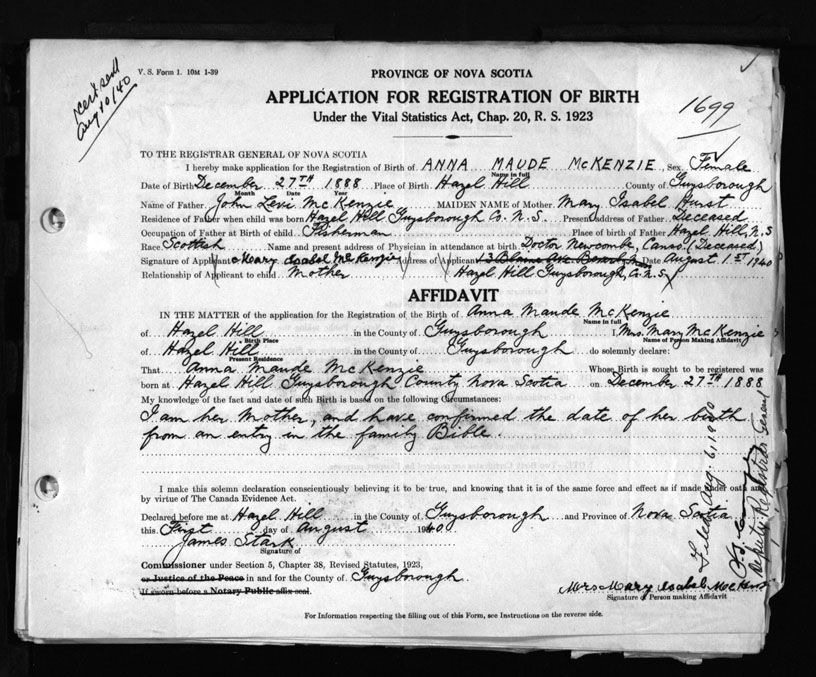 cert sent
Aug 10/40
V. S. Form 1. 10M 1-39
PROVINCE OF NOVA SCOTIA
APPLICATION FOR REGISTRATION OF BIRTH
1699
Under the Vital Statistics Act, Chap. 20, R. S. 1923
TO THE REGISTRAR GENERAL OF NOVA SCOTIA
I hereby make application for the Registration of Birth of ANNA MAUDE McKENZIE Sex Female
Name in full
Date of Birth December 27TH 1888 Place of Birth Hazel Hill County of Guysborough
Month Date Year
Name of Father John Levi McKenzie MAIDEN NAME of Mother Mary Isabel Hurst
Residence of Father when child was born Hazel Hill Guysborough Co. N.S. Present address of Father Deceased
Occupation of Father at Birth of child Fisherman Place of birth of Father Hazel Hill, N.S
Race Scottish Name and present address of Physician in attendance at birth Doctor Newcombe, Canso (Deceased)
Signature of Applicant Mary Isabel McKenzie Address of Applicant 13 Blaine Ave Date August 1ST 1940
Relationship of Applicant to child Mother Hazel Hill Guysborough, Co. N.S.
AFFIDAVIT
IN THE MATTER of the application for the Registration of the Birth of Anna Maude McKenzie
Name in full
of Hazel Hill in the County of Guysborough I, Mrs. Mary McKenzie
Birth Place Name of Person Making Affidavit
of Hazel Hill in the County of Guysborough do solemnly declare:
Present Residence
That Anna Maude McKenzie Whose Birth is sought to be registered was
born at Hazel Hill Guysborough County Nova Scotia on December 27TH 1888
My knowledge of the fact and date of such Birth is based on the following Circumstances:
I am her Mother, and have confirmed the date of her birth
from an entry in the family Bible.
I make this solemn declaration conscientiously believing it to be true, and knowing that it is of the same force and effect as if made under oath and
by virtue of The Canada Evidence Act.
Declared before me at Hazel Hill in the County of Guysborough and Province of Nova Scotia
this First day of August 1940.
James Stark
Signature of
Commissioner under Section 5, Chapter 38, Revised Statutes, 1923,
or Justice of the Peace in and for the County of Guysborough.
If sworn before a Notary Public affix seal.
Mrs Mary Isabel McKenzie
Signature of Person making Affidavit
For Information respecting the filling out of this Form, see Instructions on the reverse side.
Filed Aug. 6, 1940
Deputy Registrar General